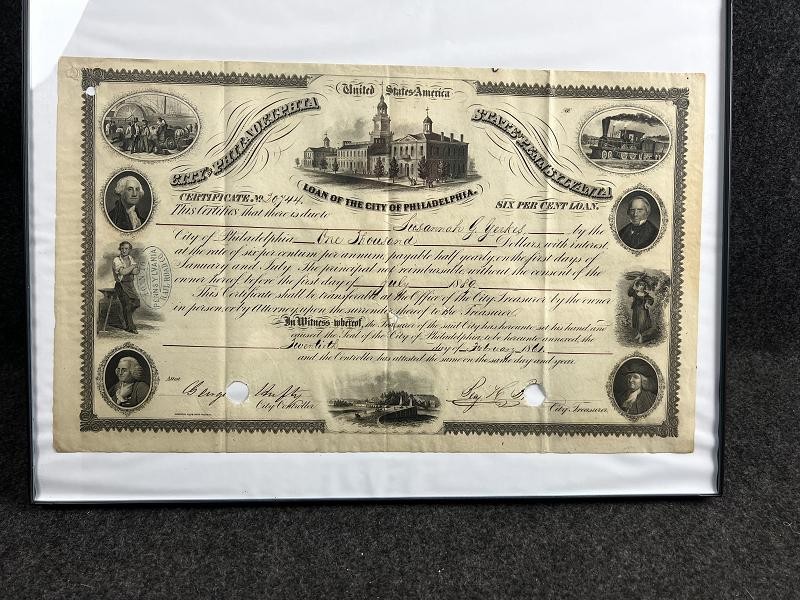 United States America
CITY OF PHILADELPHIA
STATE OF PENNSYLVANIA
LOAN OF THE CITY OF PHILADELPHIA.
CERTIFICATE No. 30744.
SIX PER CENT LOAN.
This Certifies that there is due to Susannah G. Yerkes by the
City of Philadelphia One Thousand Dollars, with interest,
at the rate of six per centum per annum, payable half yearly on the first days of
January and July. The principal not reimbursable without the consent of the
owner hereof before the first day of July
This Certificate shall be transferable at the Office of the City Treasurer by the owner
in person, or by Attorney, upon the surrender hereof to the Treasurer.
In Witness whereof, the Treasurer of the said City has hereunto set his hand, and
caused the Seal of the City of Philadelphia, to be hereunto annexed, the
Twentieth day of February 1861.
and the Controller has attested the same on the same day and year.
PENNSYLVANIA
RAILROAD
Attest
City Controller
City Treasurer.